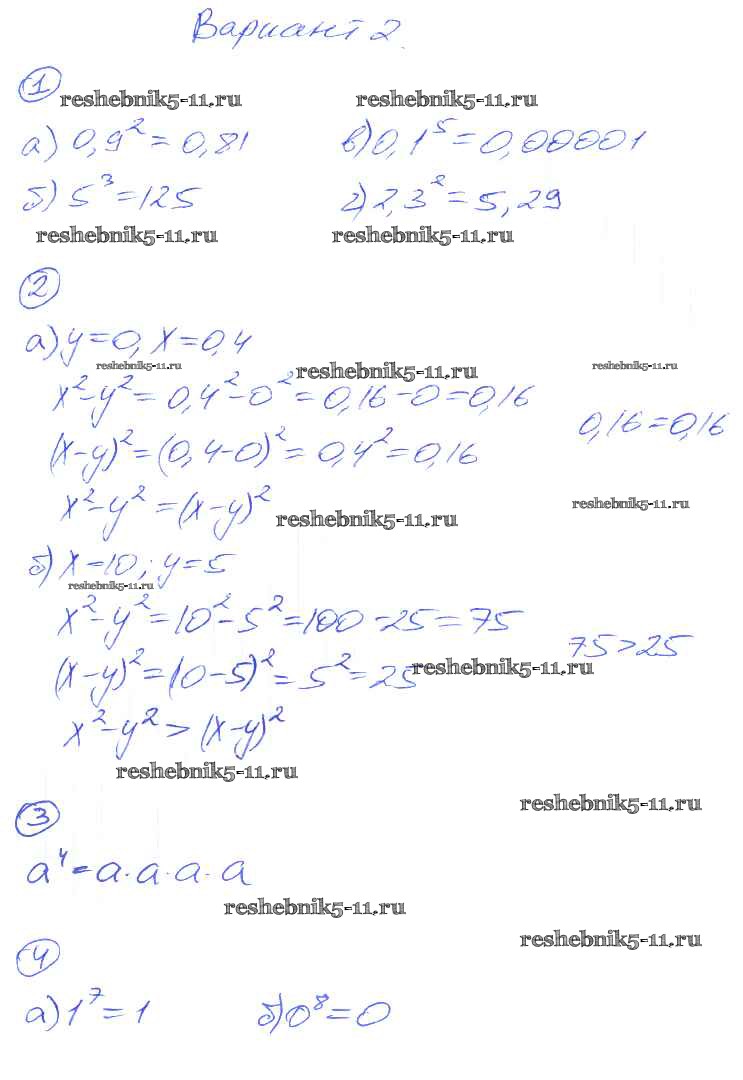 Вариант 2.
1
reshebnik5-11.ru reshebnik5-11.ru
а) 0,9² = 0,81 в) 0,1⁵ = 0,00001
б) 5³ = 125 г) 2,3² = 5,29
reshebnik5-11.ru reshebnik5-11.ru
2
а) y = 0, x = 0,4
reshebnik5-11.ru reshebnik5-11.ru reshebnik5-11.ru
x² - y² = 0,4² - 0² = 0,16 - 0 = 0,16
0,16 = 0,16
(x - y)² = (0,4 - 0)² = 0,4² = 0,16
x² - y² = (x - y)²
reshebnik5-11.ru reshebnik5-11.ru
б) x = 10; y = 5
reshebnik5-11.ru
x² - y² = 10² - 5² = 100 - 25 = 75
75 > 25
(x - y)² = (10 - 5)² = 5² = 25
reshebnik5-11.ru
x² - y² > (x - y)²
reshebnik5-11.ru
reshebnik5-11.ru
3
a⁴ = a · a · a · a
reshebnik5-11.ru
reshebnik5-11.ru
4
а) 1⁷ = 1 б) 0⁸ = 0